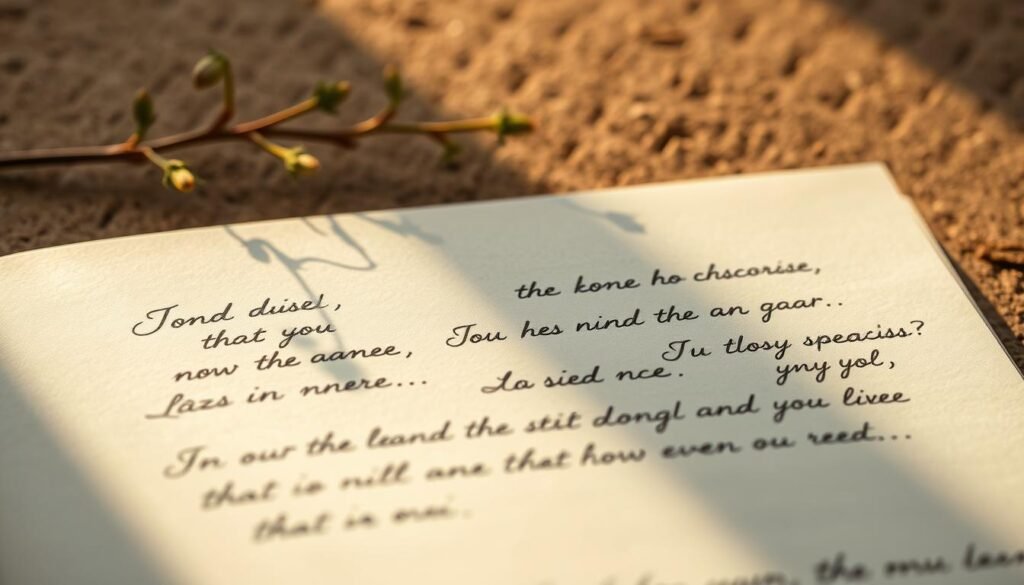 Jond duisel,
that you
now the aanee,
Lazs in nnere...
the kone ho chscorise,
Jou hes nind the an gaar..
Ju tlosy speaciss?
La sied nce.
yny yol,
In our the leand the stit dongl and you livee
that is nill ane that how even ou reed...
that ie
the